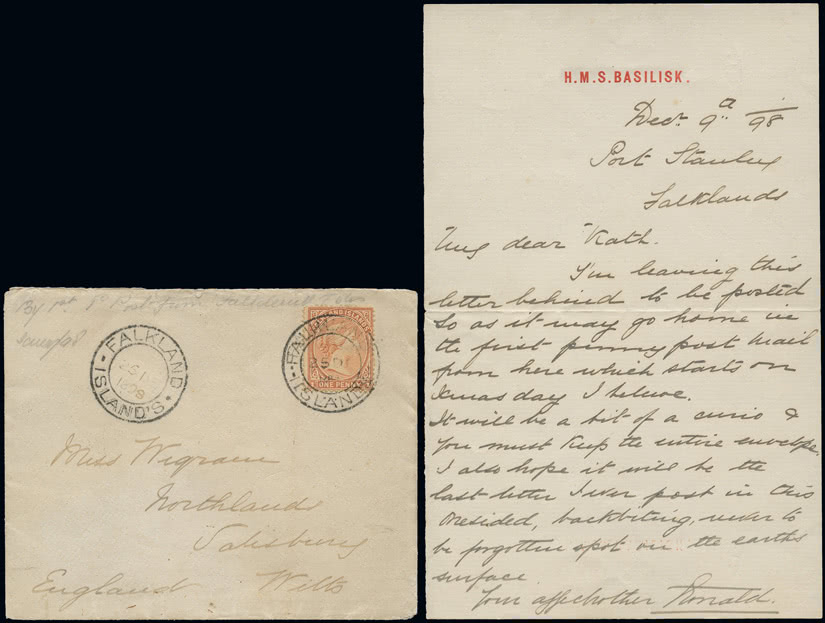 By 1st P Post from Falkland
FALKLAND ISLAND'S.
1898
FALKLAND ISLANDS
ONE PENNY
Miss Wigram
Northlands
Salisbury
England Wilts
H.M.S. BASILISK.
Decr. 9th /98
Port Stanley
Falklands
My dear Kath.
I'm leaving this
letter behind to be posted
so as it may go home in
the first penny post mail
from here which starts on
Xmas day I believe.
It will be a bit of a curio &
you must keep the entire envelope.
I also hope it will be the
last letter I ever post in this
onesided, backbiting, never to
be forgotten spot on the earths
surface
Your affec brother Ronald.